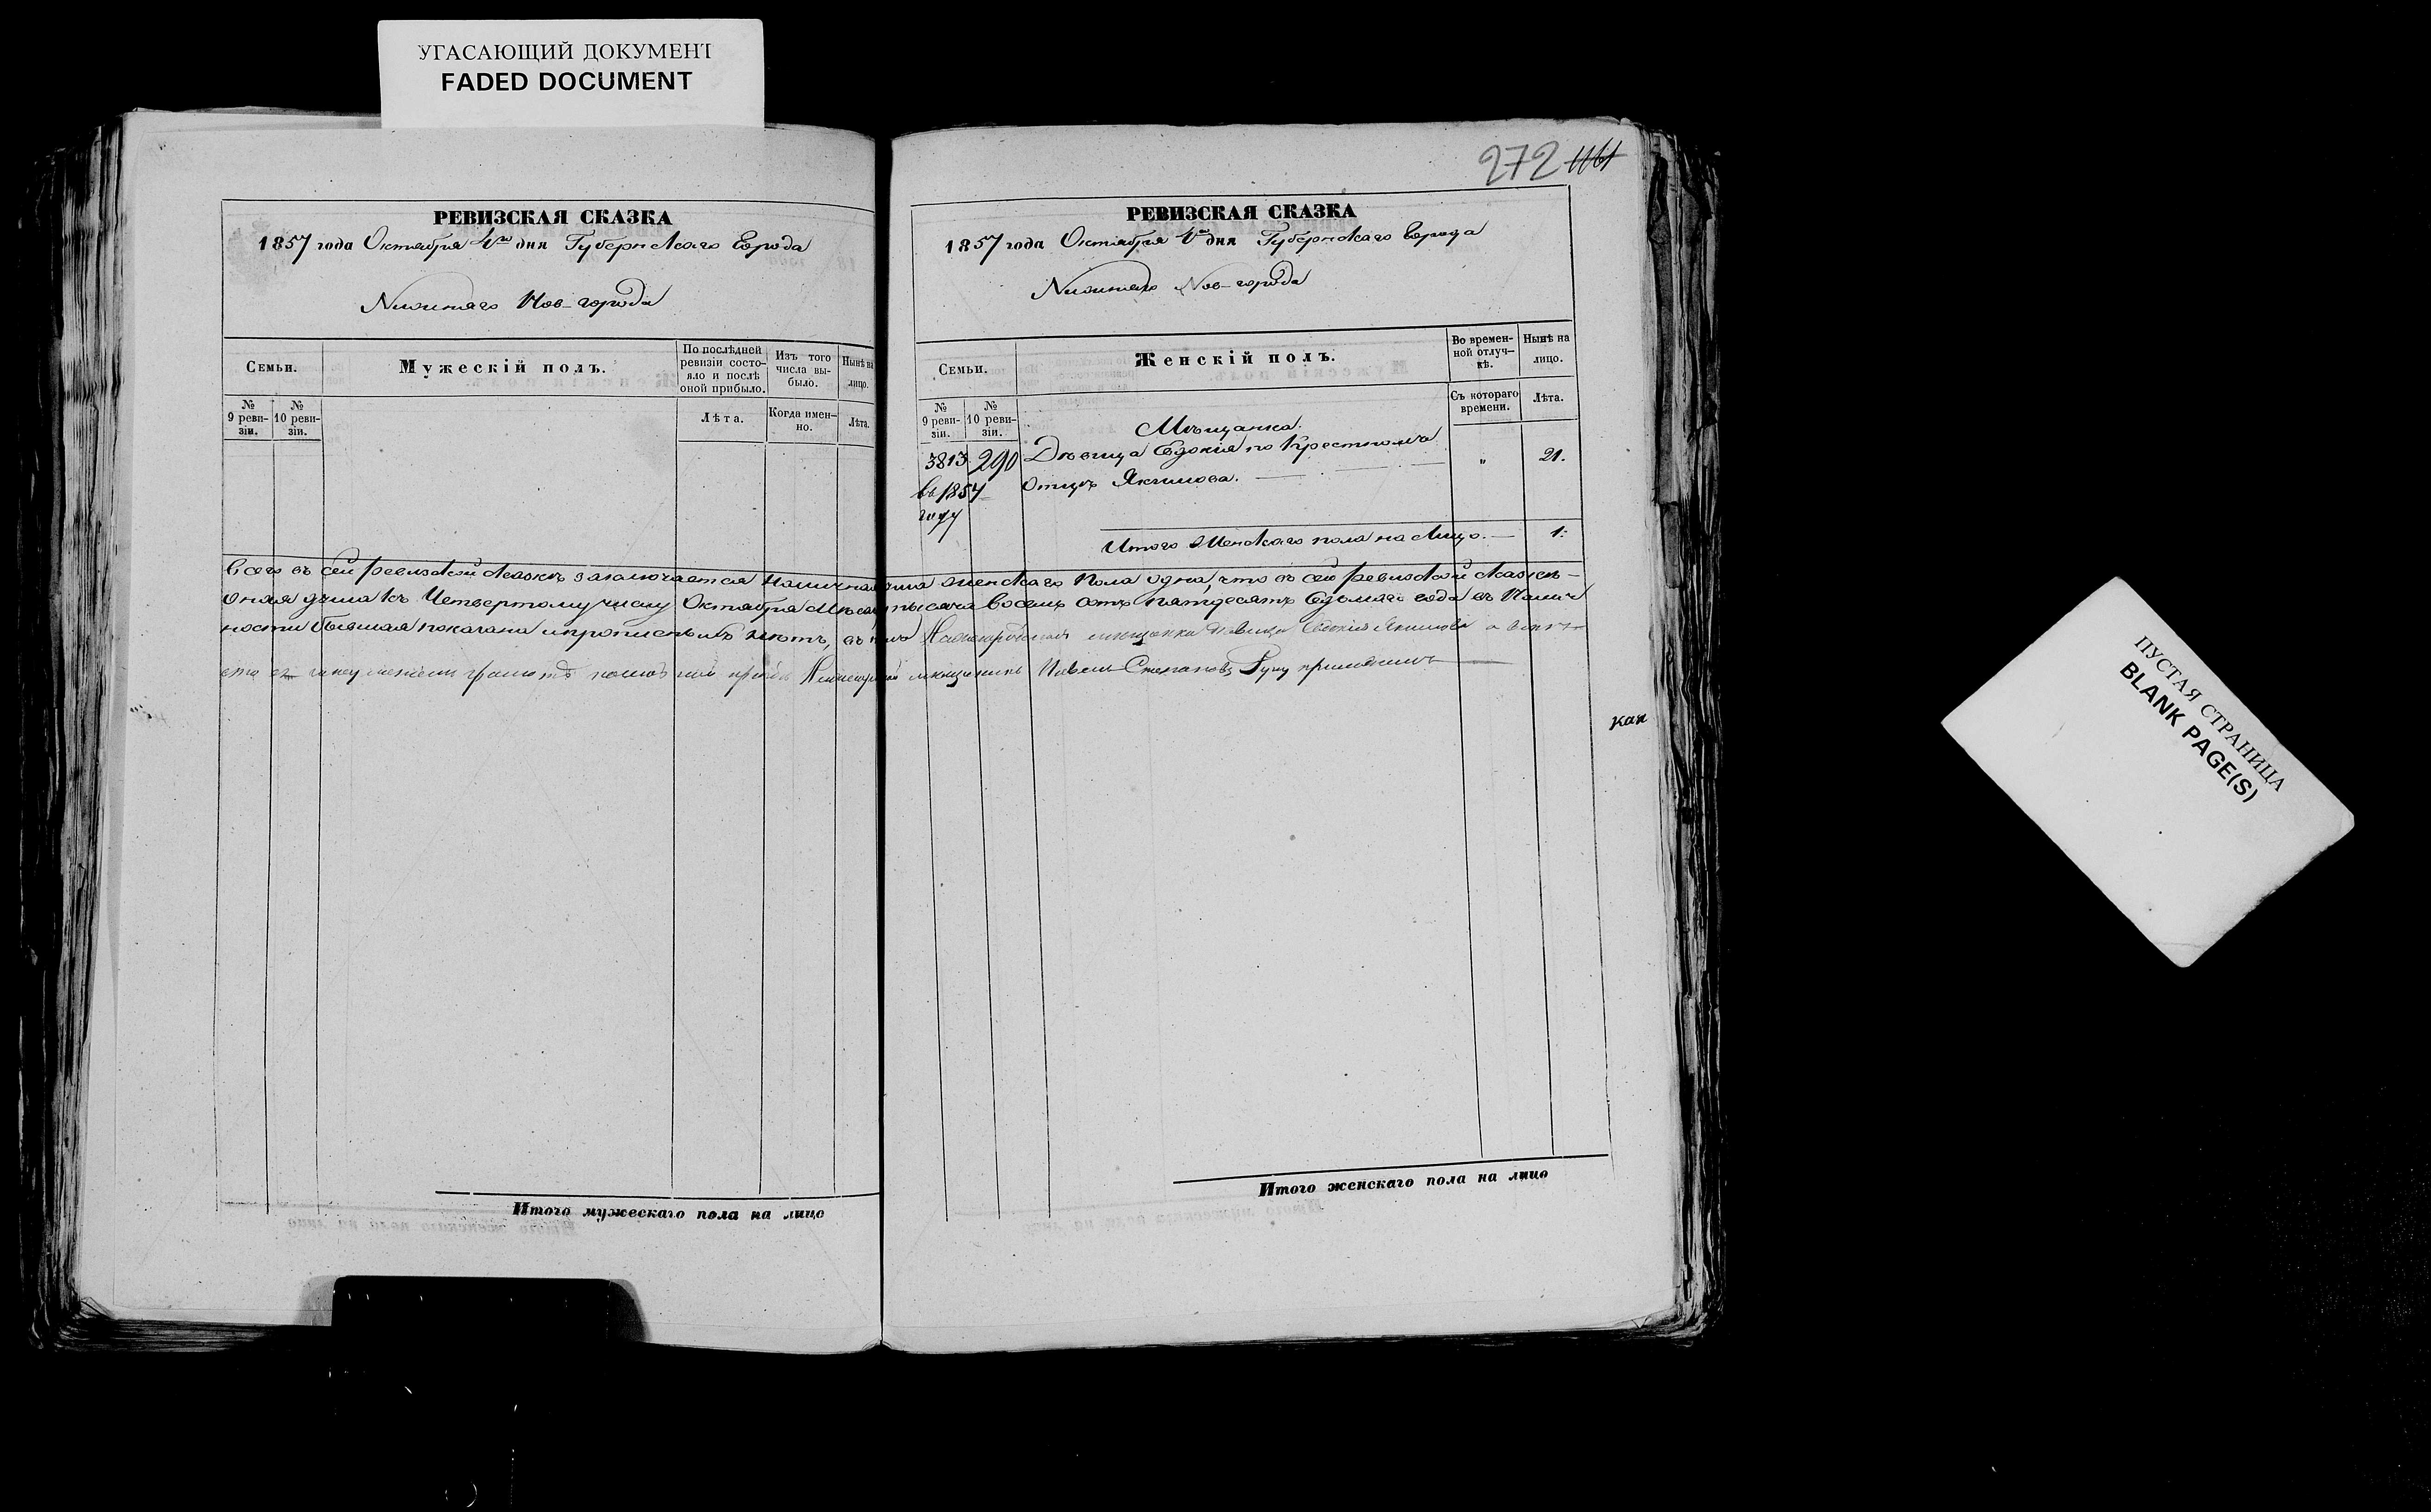 УГАСАЮЩИЙ ДОКУМЕНТ
FADED DOCUMENT
РЕВИЗСКАЯ СКАЗКА
1857 года Октября 4го дня Губернскаго Города
Нижняго Нов-города
Семьи.
Мужескій полъ.
По послѣдней ревизіи состояло и послѣ оной прибыло.
Изъ того числа выбыло.
Нынѣ на лицо.
№ 9 ревизіи.
№ 10 ревизіи.
Лѣта.
Когда именно.
Лѣта.
272 1161
РЕВИЗСКАЯ СКАЗКА
1857 года Октября 4го дня Губернскаго Города
Нижняго Нов-города
Семьи.
Женскій полъ.
Во временной отлучкѣ.
Нынѣ на лицо.
№ 9 ревизіи.
№ 10 ревизіи.
Съ котораго времени.
Лѣта.
Мѣщанка.
3813 290 Дѣвица Евдокія по Крестномъ " 21.
въ 1857 Отцѣ Якимова.
году
Итого Женскаго пола на Лицо. 1.
Всего въ сей ревизской сказкѣ заключается Наличная душа женскаго Пола одна, что въ сей ревизской сказкѣ
оная душа къ Четвертому числу Октября Мѣсяца тысяча восемь сотъ пятдесятъ Седьмаго года въ Налич
ности бывшая показана и прописныхъ нѣтъ, въ томъ Нижегородская мѣщанка дѣвица Евдокія Якимова а вмѣ
сто ея грамотѣ Нижегородской мѣщанинъ Павелъ Степановъ Руку приложилъ
как
Итого мужескаго пола на лицо
Итого женскаго пола на лицо
ПУСТАЯ СТРАНИЦА
BLANK PAGE(S)